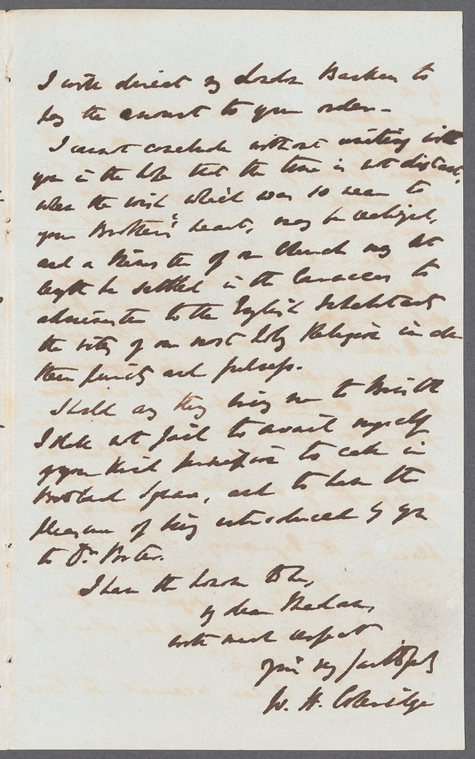 I will direct my London Bankers to
pay the amount to your order.
I cannot conclude without uniting with
you in the hope that the time is not distant,
when the wish which was so near to
your Brother's heart, may be realized,
and a Minister of our Church may at
length be settled in the Caraccas to
administer to the English Inhabitants
the rites of our most holy Religion in all
their purity and fulness.
Should any thing bring me to Bristol
I shall not fail to avail myself
of your kind permission to call in
Portland Square, and to have the
pleasure of being introduced by you
to Dr. Porter.
I have the honor to be,
my dear Madam,
with much respect
your very faithfully
W. H. Coleridge